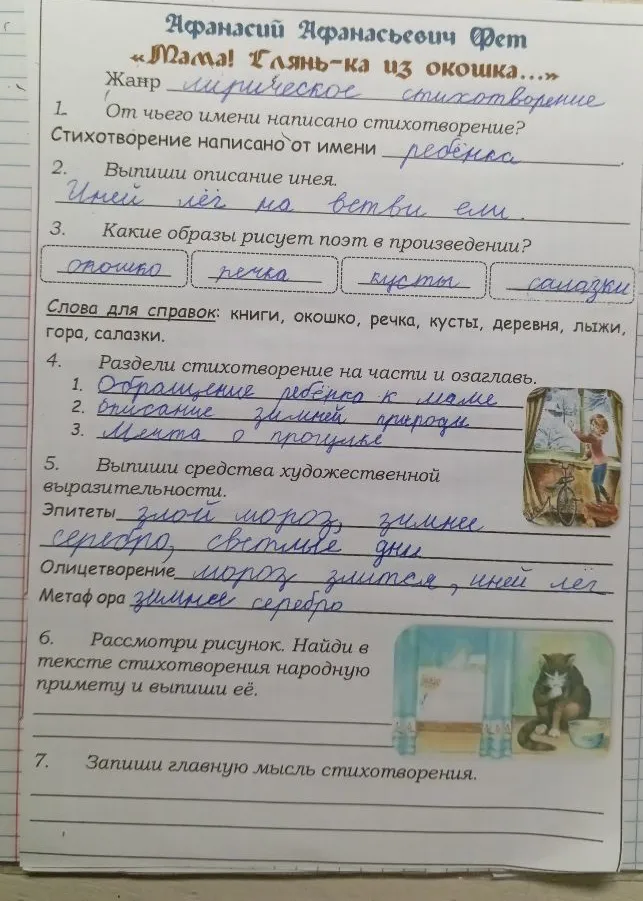 Афанасий Афанасьевич Фет
«Мама! Глянь-ка из окошка...»
Жанр лирическое стихотворение
1. От чьего имени написано стихотворение?
Стихотворение написано от имени ребёнка.
2. Выпиши описание инея.
Иней лёг на ветви ели.
3. Какие образы рисует поэт в произведении?
окошко речка кусты салазки
Слова для справок: книги, окошко, речка, кусты, деревня, лыжи,
гора, салазки.
4. Раздели стихотворение на части и озаглавь.
1. Обращение ребёнка к маме
2. описание зимней природы
3. Мечта о прогулке
5. Выпиши средства художественной
выразительности.
Эпитеты злой мороз, зимнее
серебро, светлые дни
Олицетворение мороз злится, иней лёг
Метафора зимнее серебро
6. Рассмотри рисунок. Найди в
тексте стихотворения народную
примету и выпиши её.
7. Запиши главную мысль стихотворения.